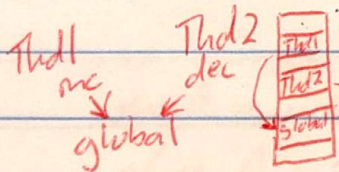 Thd1 Thd2
inc dec
global
Thd1
Thd2
global